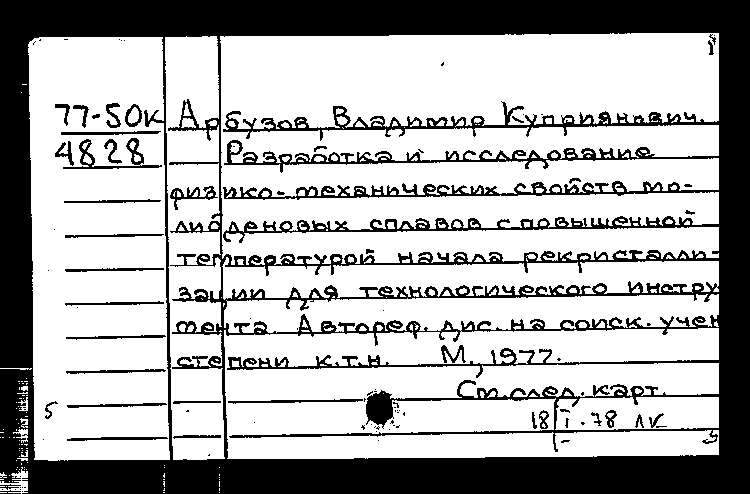 77-50к Арбузов, Владимир Куприянович.
4828 Разработка и исследование
физико-механических свойств мо-
либденовых сплавов с повышенной
температурой начала рекристалли-
зации для технологического инстру
мента. Автореф. дис. на соиск. учен
степени к.т.н. М., 1977.
См. след. карт.
5 18/I-78 лк